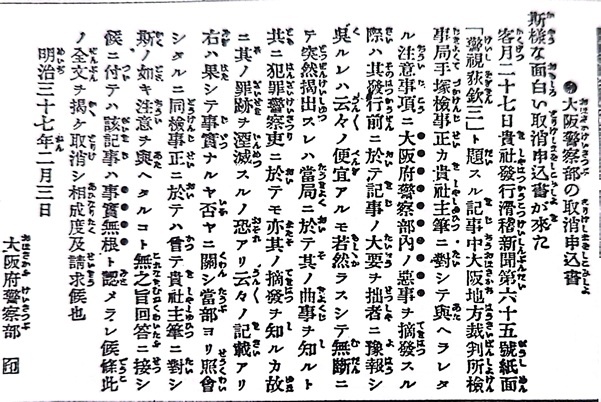 ●大阪警察部の取消申込書
斯樣な面白い取消申込書が來た
客月二十七日貴社發行滑稽新聞第六十五號紙面
「警視荻欽三」ト題スル記事中大阪地方裁判所檢
事局手塚檢事正カ貴社主筆ニ對シテ與ヘラレタ
ル注意事項ニ大阪府警察部內ノ惡事ヲ摘發スル
際ハ其發行前ニ於テ記事ノ大要ヲ拙者ニ豫報シ
吳ルレハ云々ノ便宜アルモ若然ラスシテ無斷ニ
テ突然揭出スレハ當局ニ於テ其ノ曲事ヲ知ルト
共ニ犯罪警察吏ニ於テモ亦其ノ摘發ヲ知ルカ故
ニ其ノ罪跡ヲ湮滅スルノ恐アリ云々ノ記載アリ
右ハ果シテ事實ナルヤ否ヤニ關シ當部ヨリ照會
シタルニ同檢事正ニ於テハ曾テ貴社主筆ニ對シ
斯ノ如キ注意ヲ與ヘタルコト無之旨回答ニ接シ
候ニ付テハ該記事ハ事實無根ト認メラレ候條此
ノ全文ヲ揭ケ取消シ相成度及請求候也
明治三十七年二月三日
大阪府警察部 印